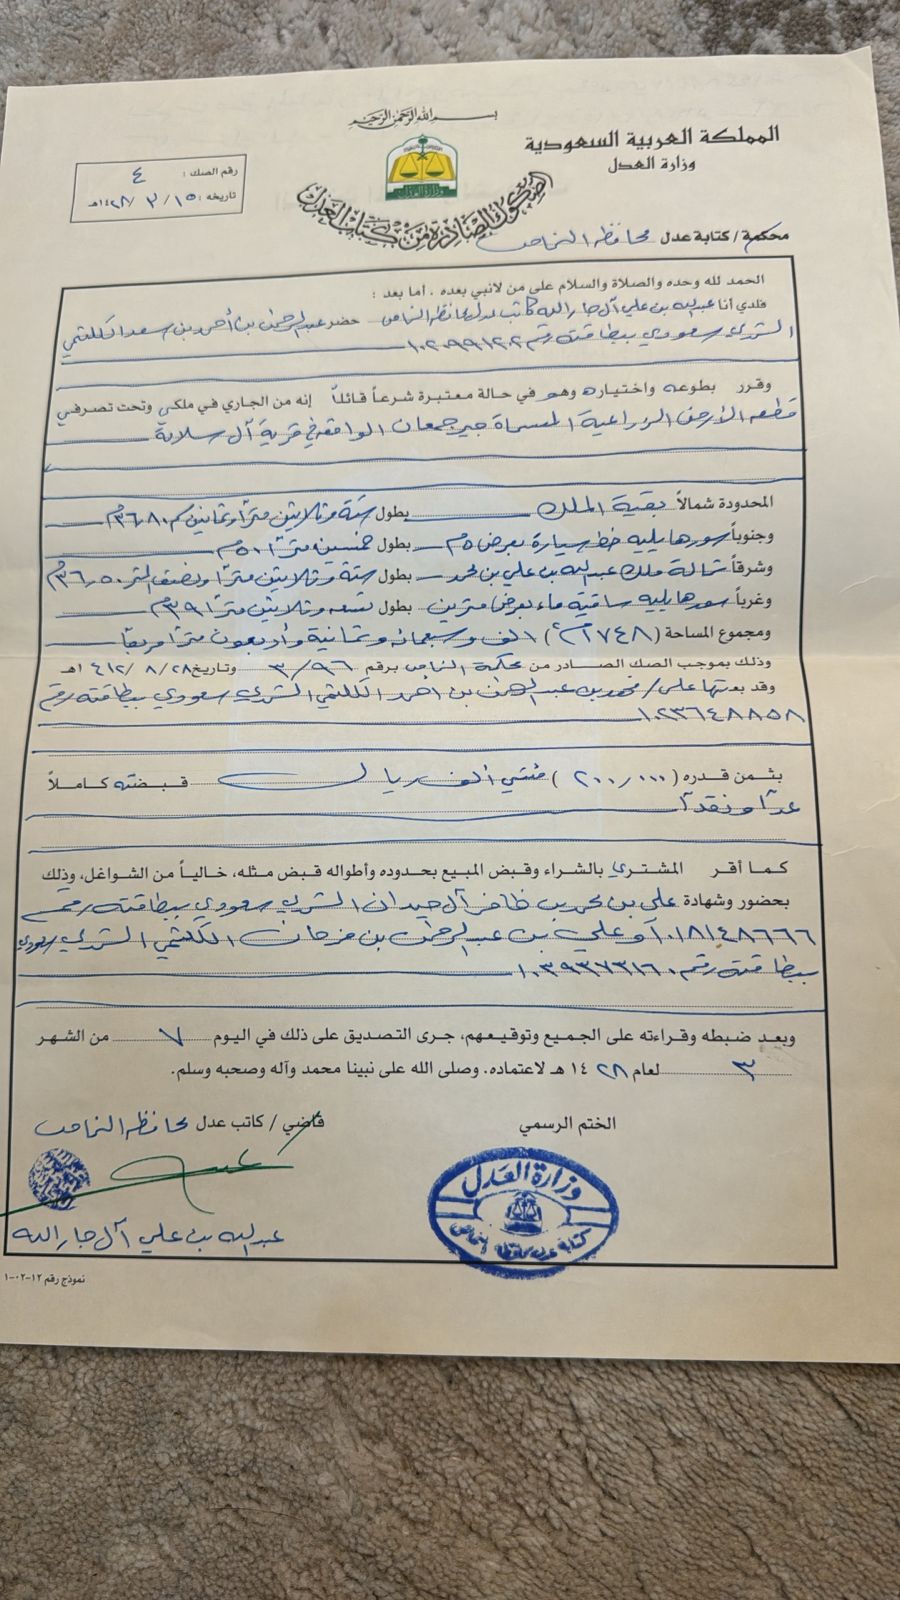 بسم الله الرحمن الرحيم
المملكة العربية السعودية
وزارة العدل
الصكوك الصادرة من كتابات العدل
رقم الصك : ٤
تاريخه : ١٥ / ٣ / ١٤٢٨هـ
محكمة / كتابة عدل محافظة النماص
الحمد لله وحده والصلاة والسلام على من لانبي بعده . أما بعد :
فلدي أنا عبدالله بن علي آل جارالله كاتب عدل محافظة النماص حضر عبدالرحمن بن أحمد بن سعد الكلثمي
الشهري سعودي ببطاقة رقم
وقرر بطوعه واختياره وهو في حالة معتبرة شرعاً قائلاً إنه من الجاري في ملكي وتحت تصرفي
قطعة الأرض الزراعية المسماة جمعان الواقعة في قرية آل سلامة
المحدودة شمالاً بقية الملك بطول ستة وثلاثين متراً وثمانين سم ٣٦٫٨٠م
وجنوباً سور هايليه خط سيارة بعرض ٥م بطول خمسين متراً ٥٠م
وشرقاً ملك عبدالله بن علي بن بطول ستة وثلاثين متراً ونصف المتر ٣٦٫٥٠م
وغرباً سور هايليه ساقية ماء بعرض مترين بطول تسعة وثلاثين متراً ٣٩م
ومجموع المساحة (١٧٤٨م٢) الف وسبعمائة وثمانية وأربعون متراً مربعاً
وذلك بموجب الصك الصادر من محكمة النماص برقم ٣/٩٦ وتاريخ ٢٨ / ٨ / ١٤١٢ هـ
وقد بعتها على / محمد بن عبدالرحمن بن احمد الكلثمي الشهري سعودي ببطاقة رقم
١٠٢٣٦٤٨٨٥٨
بثمن قدره (٢٠٠/٠٠٠) مئتي ألف ريال قبضته كاملاً
عداً ونقداً
كما أقر المشتري بالشراء وقبض المبيع بحدوده وأطواله قبض مثله، خالياً من الشواغل، وذلك
بحضور وشهادة علي بن محمد بن ظافر آل حيدان الشهري سعودي ببطاقة رقم
وعلي بن عبدالرحمن بن فرحان الكلثمي الشهري سعودي
ببطاقة رقم ١٠٣٩٣٧٣١٦٠
وبعد ضبطه وقراءته على الجميع وتوقيعهم، جرى التصديق على ذلك في اليوم ٧ من الشهر
٣ لعام ١٤٢٨ هـ لاعتماده. وصلى الله على نبينا محمد وآله وصحبه وسلم.
الختم الرسمي
قاضي / كاتب عدل محافظة النماص
وزارة العدل
كتابة عدل محافظة النماص
عبدالله بن علي آل جارالله
نموذج رقم ١٢-٠٢-١